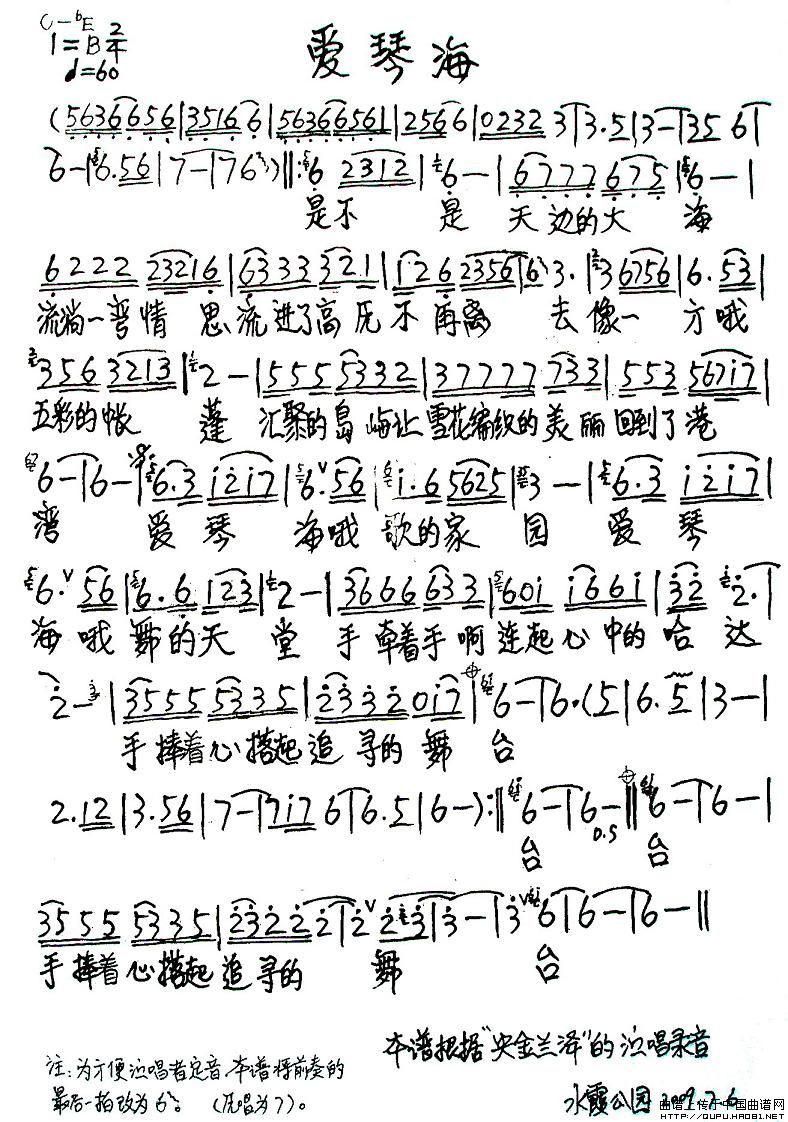 C－ᵇE
1=B 2/4
♩=60
爱琴海
(5636656|35166|563666561|25666|0232 3|3.5|3－|35 6|
6－|6.56|7－|76)‖:6 2312|6－|6777 675|6－|
是不 是 天边的大 海
6222 23216|63333321|i26 23566 3.|36756|6.53|
流淌一弯情 思 流进了高 历 不再离 去 像一 方哦
356 3213|2－|555 5332|37777 733|553 567i7|
五彩的帐 蓬 汇聚的岛 屿让雪花编织的美丽回到了港
6－|6－|6.3 i2i7|6.56|i.65625|3－|6.3 i2i7|
湾 爱琴 海哦歌的家 园 爱琴
6.56|6.6 i23|2－|3666 633|60i i66i|32 2.|
海哦舞的天 堂 手牵着手啊连起心中的哈达
2－|3555 5335|2332 0i7|6－|6.(5|6.5|3－|
手捧着心搭起追寻的舞台
2.12|3.56|7－|7i7 6|6.5|6－):‖6－|6－‖6－|6－|
D.S
台 台
3555 5335|2322 2|2 23|3－|3 6|6－|6－‖
手捧着心搭起追寻的 舞 台
本谱根据“央金兰泽”的演唱录音
注:为方便演唱者定音,本谱将前奏的
最后一拍改为6。 (原唱为7)。
水霞公园 2009.7.6
曲谱上传于中国曲谱网
http://QUPU.HAO81.NET